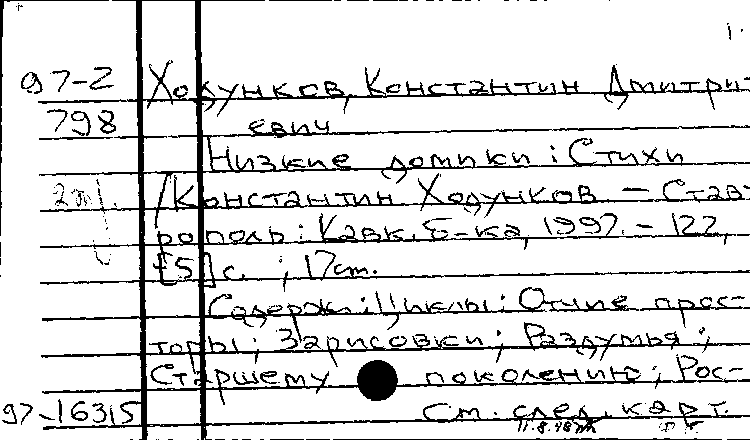 1.
97-2 Ходунков, Константин Дмитри-
798 евич
Низкие домики : Стихи
2 /Константин Ходунков — Став-
рополь : Кавк. б-ка, 1997. – 122,
[5] с. ; 17 cm.
Содерж.: Циклы: Отчие прос-
торы ; Зарисовки ; Раздумья ;
Старшему поколению ; Рос-
97-16315 См. след. карт.